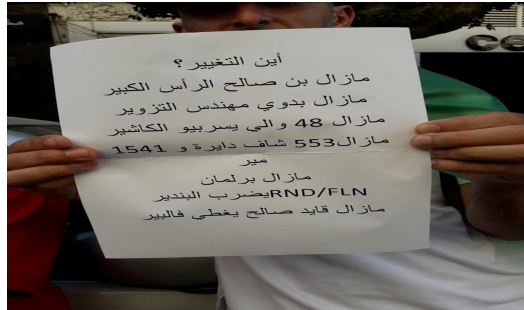 أين التغيير؟
مازال بن صالح الرأس الكبير
مازال بدوي مهندس التزوير
مازال 48 والي يسربيو الكاشير
مازال553 شاف دايرة و 1541
مير
مازال برلمان
RND/FLNيضرب البندير
مازال قايد صالح يغطي فالبير